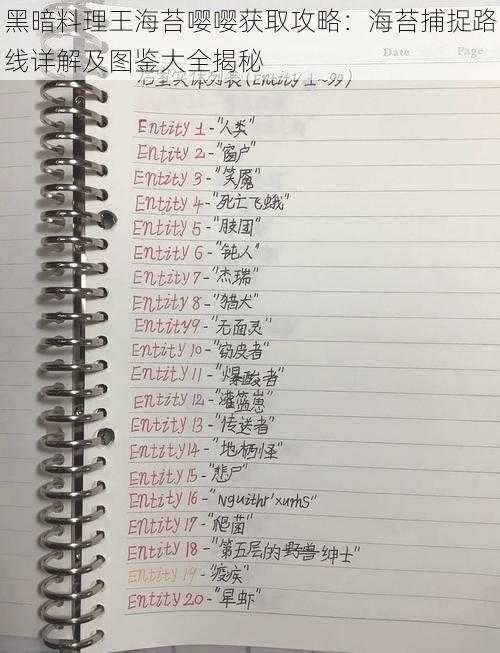 黑暗料理王海苔嘤嘤获取攻略：海苔捕捉路
线详解及图鉴大全揭秘
后室实体列表(Entity 1~99)
Date Page
Entity 1-"人类"
Entity 2-"窗户"
Entity 3-"笑魇"
Entity 4-"死亡飞蛾"
Entity 5-"肢团"
Entity 6-"钝人"
Entity 7-"杰瑞"
Entity 8-"猎犬"
Entity 9-"无面灵"
Entity 10-"窃皮者"
Entity 11-"爆酸者"
Entity 12-"灌篮崽"
Entity 13-"传送者"
Entity 14-"地栖怪"
Entity 15-"悲尸"
Entity 16-"Nguithr'xurhs"
Entity 17-"爬菌"
Entity 18-"第五层的野兽绅士"
Entity 19-"瘦疾"
Entity 20-"旱虾"